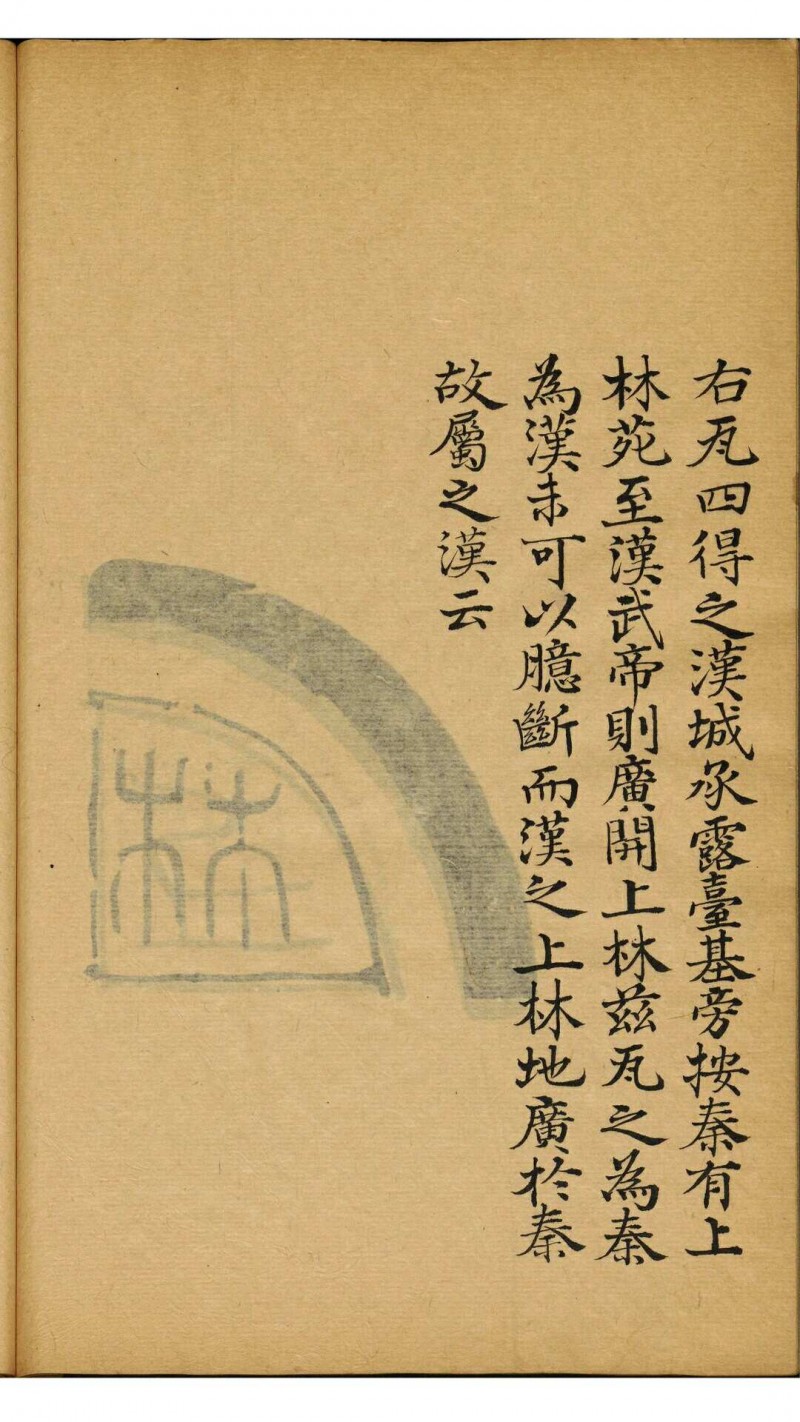 右瓦四得之漢城承露臺基旁按秦有上
林苑至漢武帝則廣開上林兹瓦之為秦
為漢未可以臆斷而漢之上林地廣於秦
故屬之漢云
林